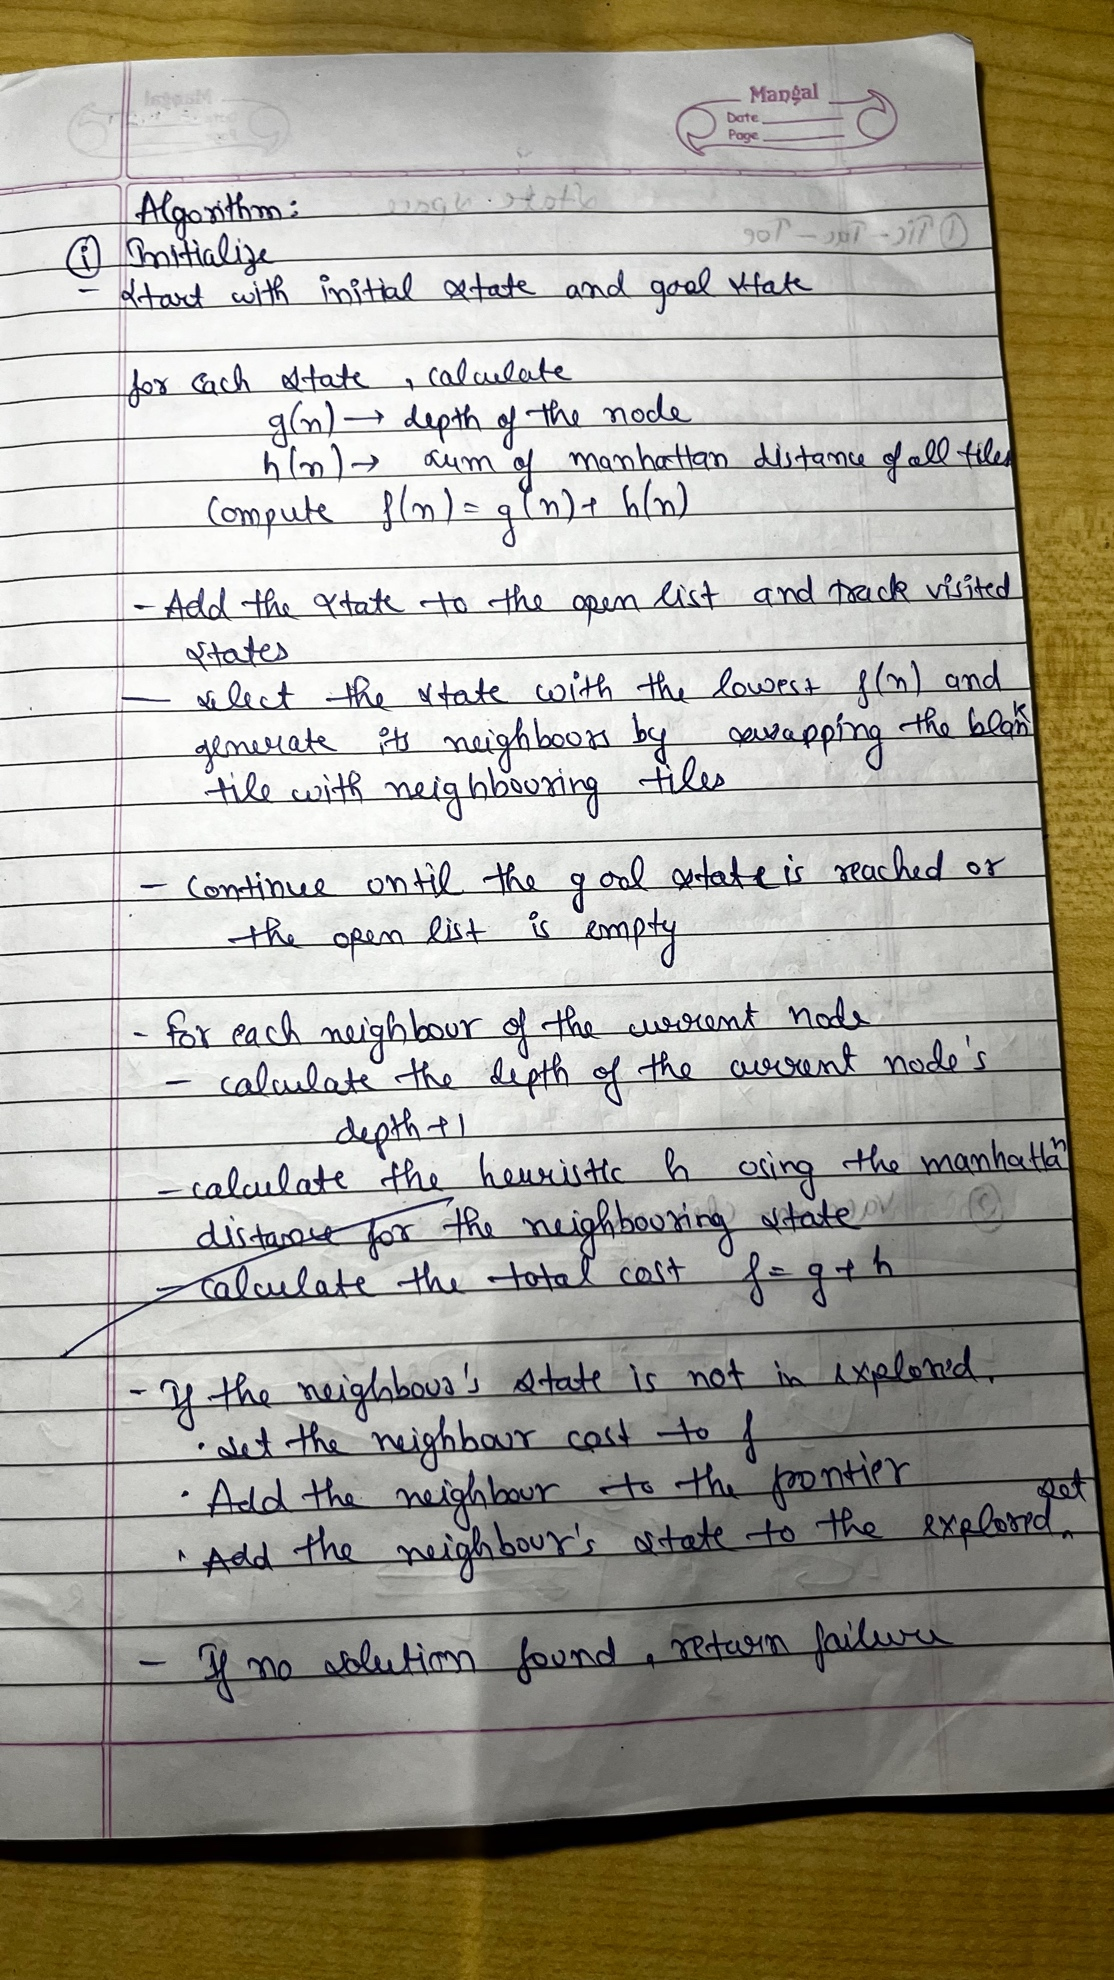 Mangal
Date
Page
Algorithm:
① Initialize
- Start with initial state and goal state
for each state, calculate
g(n) → depth of the node
h(n) → sum of manhattan distance of all tiles
Compute f(n) = g(n) + h(n)
- Add the state to the open list and track visited
states
— select the state with the lowest f(n) and
generate its neighbours by swapping the blank
tile with neighbouring tiles
- Continue until the goal state is reached or
the open list is empty
- for each neighbour of the current node
- calculate the depth of the current node's
depth +1
- calculate the heuristic h using the manhattan
distance for the neighbouring state
- calculate the total cost f = g + h
- If the neighbour's state is not in explored.
· set the neighbour cost to f
· Add the neighbour to the frontier
· Add the neighbour's state to the explored set
- If no solution found, return failure